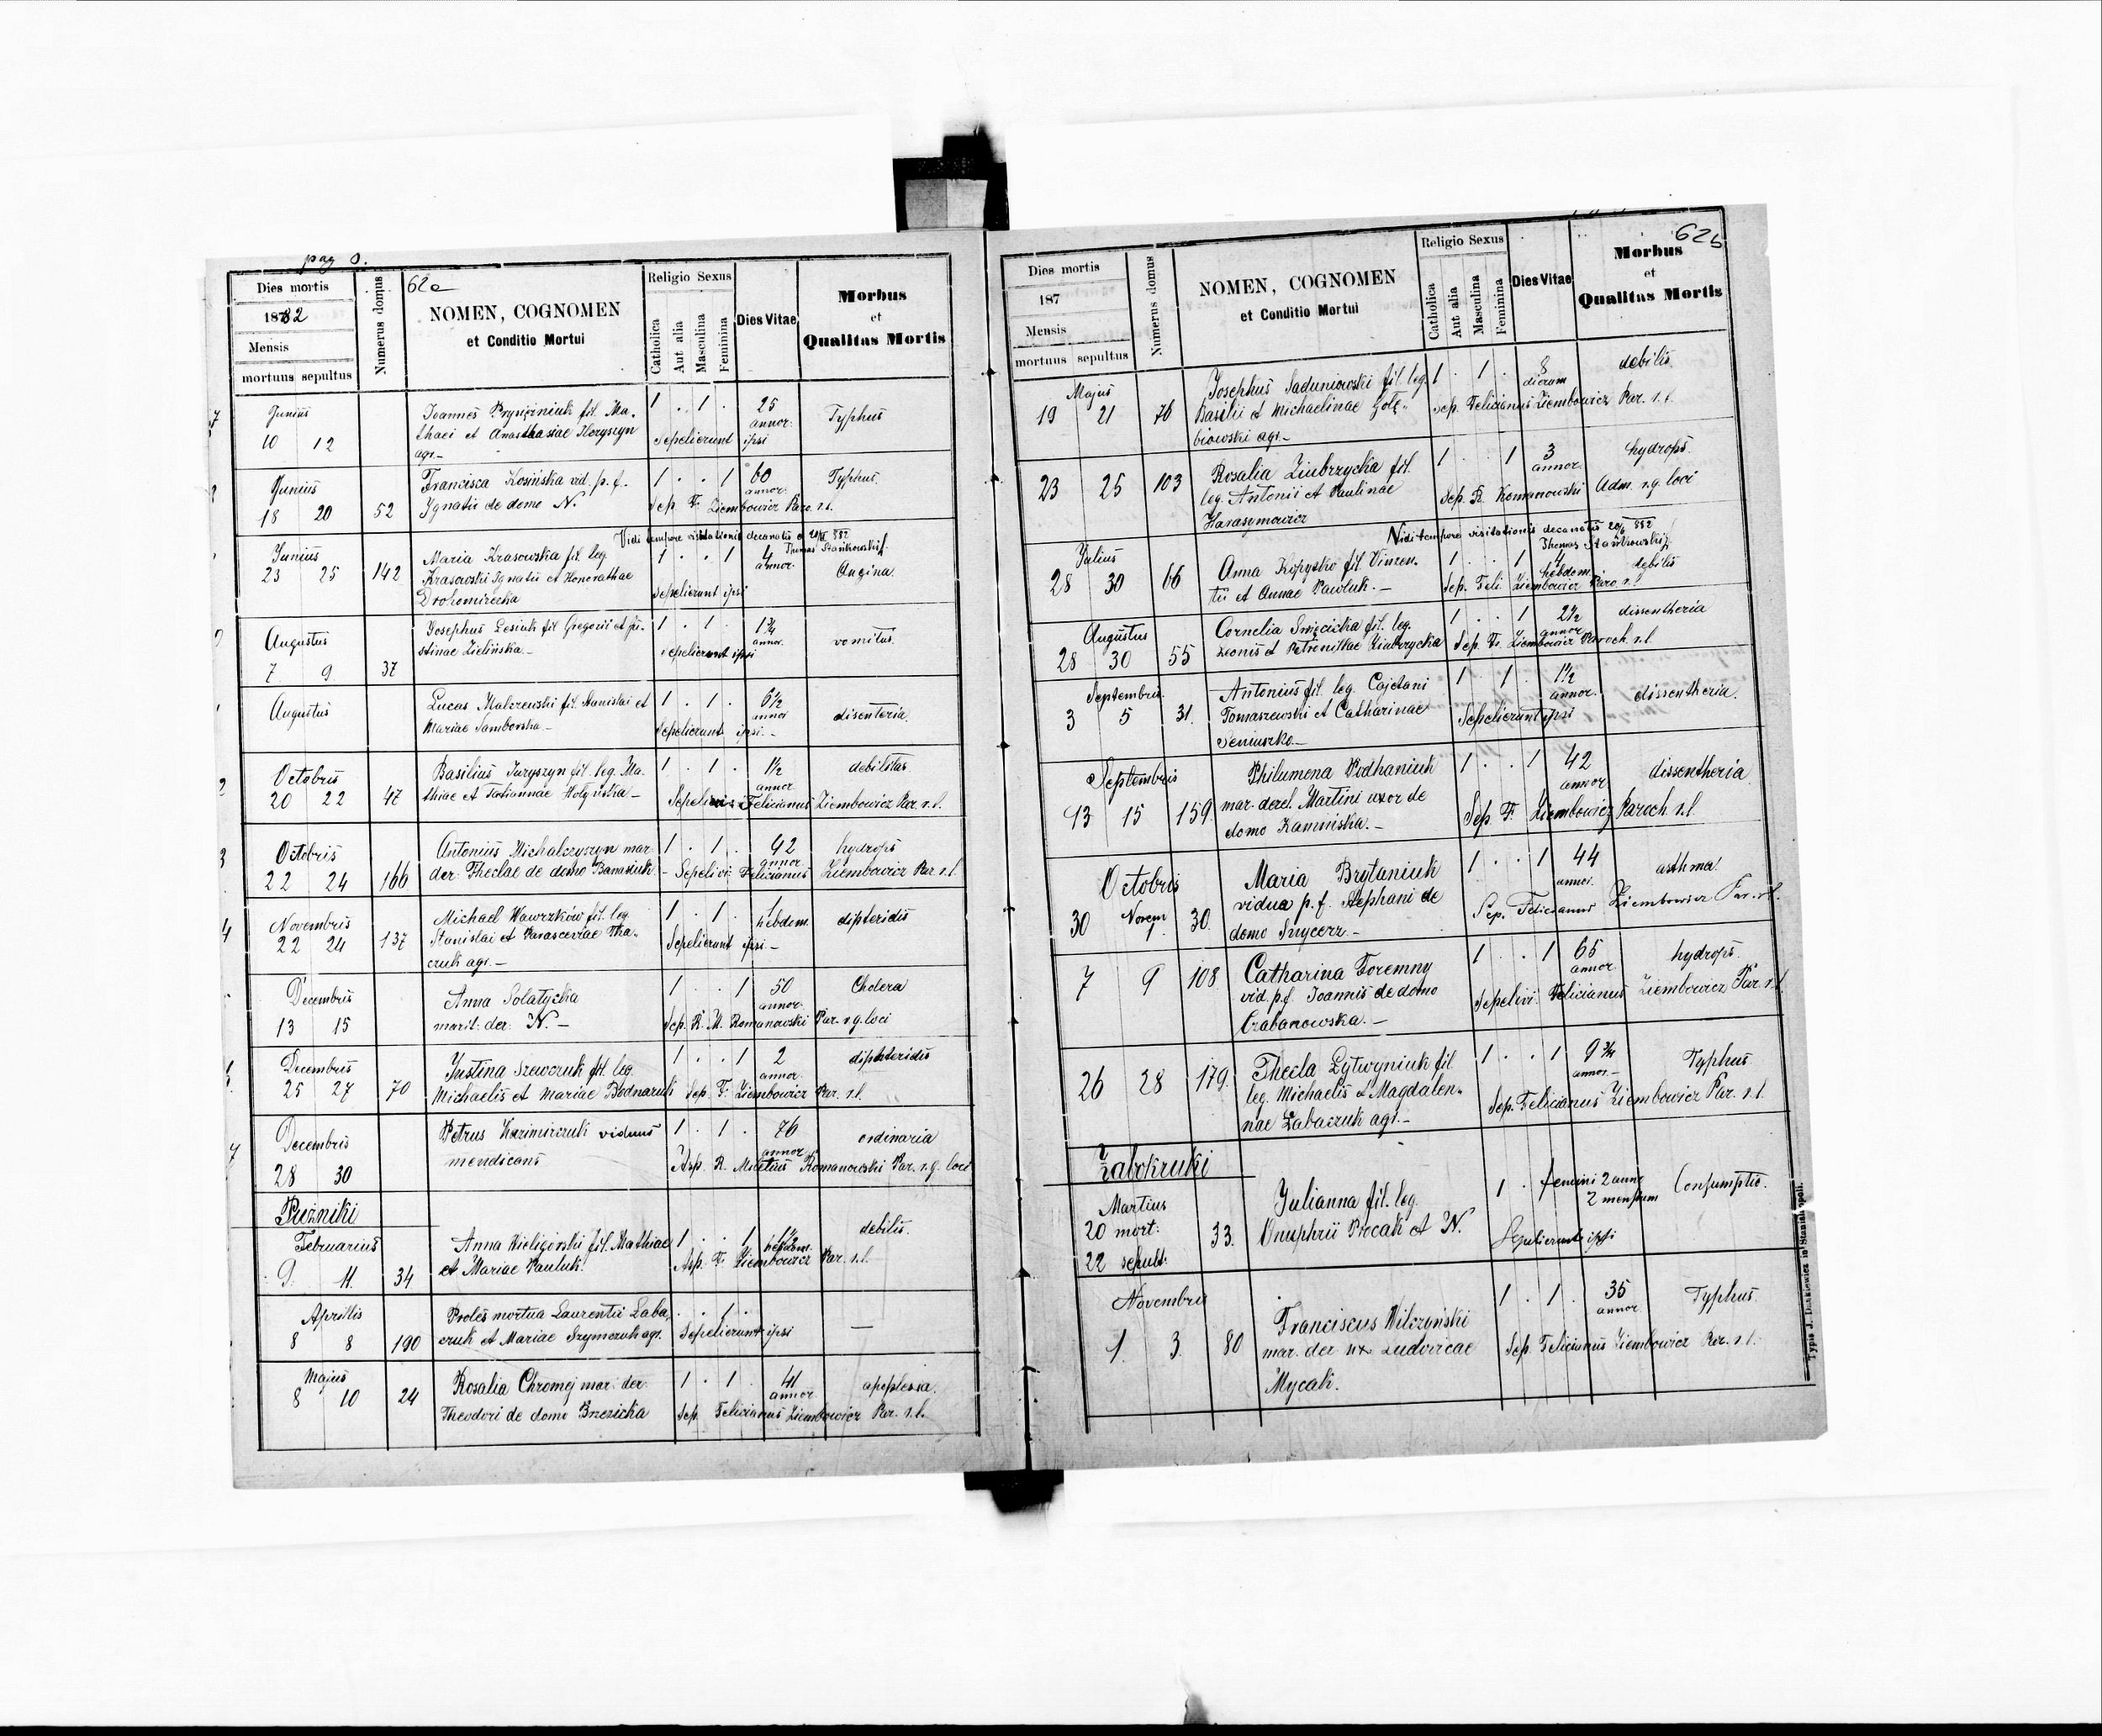 pag 8.
62a
Dies mortis
1882
Mensis
mortuus sepultus
Numerus domus
NOMEN, COGNOMEN
et Conditio Mortui
Religio Sexus
Catholica
Aut alia
Masculina
Feminina
Dies Vitae
Morbus
et
Qualitas Mortis
Junius
10 12
Joannes Prysiężniuk fil. Ma-
thaei et Anasthasiae Heryszyn
agr.-
1 . 1 .
25
annor.
Typhus
Sepelierunt ipsi
Junius
18 20 52
Francisca Kosińska vid. p. f.
Ignatii de domo N.
1 . . 1
60
annor.
Typhus.
Sep F. Ziembowicz Paro. r.l.
Vidi tempore visitationis decanatis
Thomas Stańkowski
Junius
23 25 142
Maria Krasowska fil. leg.
Krasowski Ignatii et Honorathae
Drohomirecka
1 . . 1
4
annor.
Angina
Sepelierunt ipsi
Augustus
7 9 37
Josephus Lesiuk fil Gregorii et Ju-
stinae Zielińska.-
1 . 1 .
1¾
annor.
vomitus.
sepelierunt ipsi
Augustus
Lucas Malczewski fil. Stanislai et
Mariae Samborska.-
1 . 1 .
6½
annor
disenteria.
Sepelierunt ipsi.-
Octobris
20 22 47
Basilius Juryszyn fil. leg. Ma-
thiae et Tatiannae Hołyńska-
1 . 1 .
1½
annor.
debilitas
Sepelivit Felicianus Ziembowicz Par. r.l.
Octobris
22 24 166
Antonius Michalczyszyn mar.
der. Theclae de domo Banasiuk.-
1 . 1 .
42
annor.
hydrops
Sepelivi: Felicianus Ziembowicz Par. r.l.
Novembris
22 24 137
Michael Wawrzków fil. leg.
Stanislai et Parasceviae Tka-
czuk agr.-
1 . 1 .
1
hebdom.
dipteridis
Sepelierunt ipsi.-
Decembris
13 15
Anna Solatycka
marit: der: N.-
1 . . 1
50
annor.
Cholera
Sep. R. M. Romanowski Par. r.g. loci
Decembris
25 27 70
Justina Szewczuk fil. leg.
Michaelis et Mariae Bodnaruk
1 . . 1
2
annor.
diphteridis
Sep. F. Ziembowicz Par. r.l.
Decembris
28 30
Petrus Kazimirczuk viduus
mendicans
1 . 1 .
76
annor
ordinaria
Asp. R. Miletius Romanowski Par. r.g. loci
Puźniki
Februarius
9. 11. 34
Anna Wieligórski fil. Mathiae
et Mariae Pauluk.
1 . . 1
hebdom.
debilis.
Asp. F. Ziembowicz Par. r.l.
Aprilis
8 8 190
Proles mortua Laurentii Laba-
czuk et Mariae Szymczuk agr.
. . 1 .
Sepelierunt ipsi
—
Majus
8 10 24
Rosalia Chromej mar: der:
Theodori de domo Brzezicka
1 . 1 .
41
annor
apoplexia.
Sep. Felicianus Ziembowicz Par. r.l.
62b
Dies mortis
187
Mensis
mortuus sepultus
Numerus domus
NOMEN, COGNOMEN
et Conditio Mortui
Religio Sexus
Catholica
Aut alia
Masculina
Feminina
Dies Vitae
Morbus
et
Qualitas Mortis
Majus
19 21 76
Josephus Saduniowski fil. leg.
Basilii et Michaelinae Gołę-
biowski agr.-
1 . 1 .
8
dierum
debilis.
Sep. Felicianus Ziembowicz Par. r.l.
23 25 103
Rosalia Ziubrzycka fil.
leg. Antonii et Paulinae
Harasymowicz
1 . . 1
3
annor.
hydrops.
Sep. R. Romanowski Adm. r.g. loci
Vidi tempore visitationis decanatis
Thomas Stańkowski
Julius
28 30 66
Anna Kopystko fil. Vincen-
tii et Annae Pawluk.-
1 . . 1
4
hebdom.
debilis
Sep. Feli. Ziembowicz Paro. r.l
Augustus
28 30 55
Cornelia Swięcicka fil. leg.
Leonis et Petronillae Ziubrzycka
1 . . 1
2½
annor
dissentheria
Sep. F. Ziembowicz Paroch. r.l
Septembris
3 5 31.
Antonius fil. leg. Cajetani
Tomaszewski et Catharinae
Seniuszko.-
1 . 1 .
1½
annor.
dissentheria.
Sepelierunt ipsi
Septembris
13 15 159.
Philumena Podhaniuk
mar. derel. Martini uxor de
domo Kamińska.-
1 . . 1
42
annor
dissentheria
Sep F. Ziembowicz Paroch. r.l.
Octobris
30 Novem 1. 30.
Maria Brytaniuk
vidua p. f. Stephani de
domo Snycerz.-
1 . . 1
44
annor.
asthma.
Sep. Felicianus Ziembowicz Par. r.l.
7 9 108
Catharina Foremny
vid. p.f. Joannis de domo
Czabanowska.-
1 . . 1
65
annor.
hydrops.
Sepelivi: Felicianus Ziembowicz Par. r.l
26 28 179.
Thecla Lytwyniuk fil
leg. Michaelis et Magdalen-
nae Labaczuk agr.-
1 . . 1
9¾
annor.-
Typhus.
Sep. Felicianus Ziembowicz Par. r.l.
Żabokruki
Martius
20 mort.
22 sepult.
33.
Julianna fil. leg.
Onuphrii Procak et N.
1 . femini 2 anno
2 mensium
Consumptio.
Sepelierunt ipsi
Novembris
1. 3. 80
Franciscus Wilczyński
mar. der ux. Ludovicae
Mycak.
1 . 1 .
35
annor
Typhus.
Sep. Felicianus Ziembowicz Par. r.l.
Typis J. Dankiewicz in Stanislapoli.